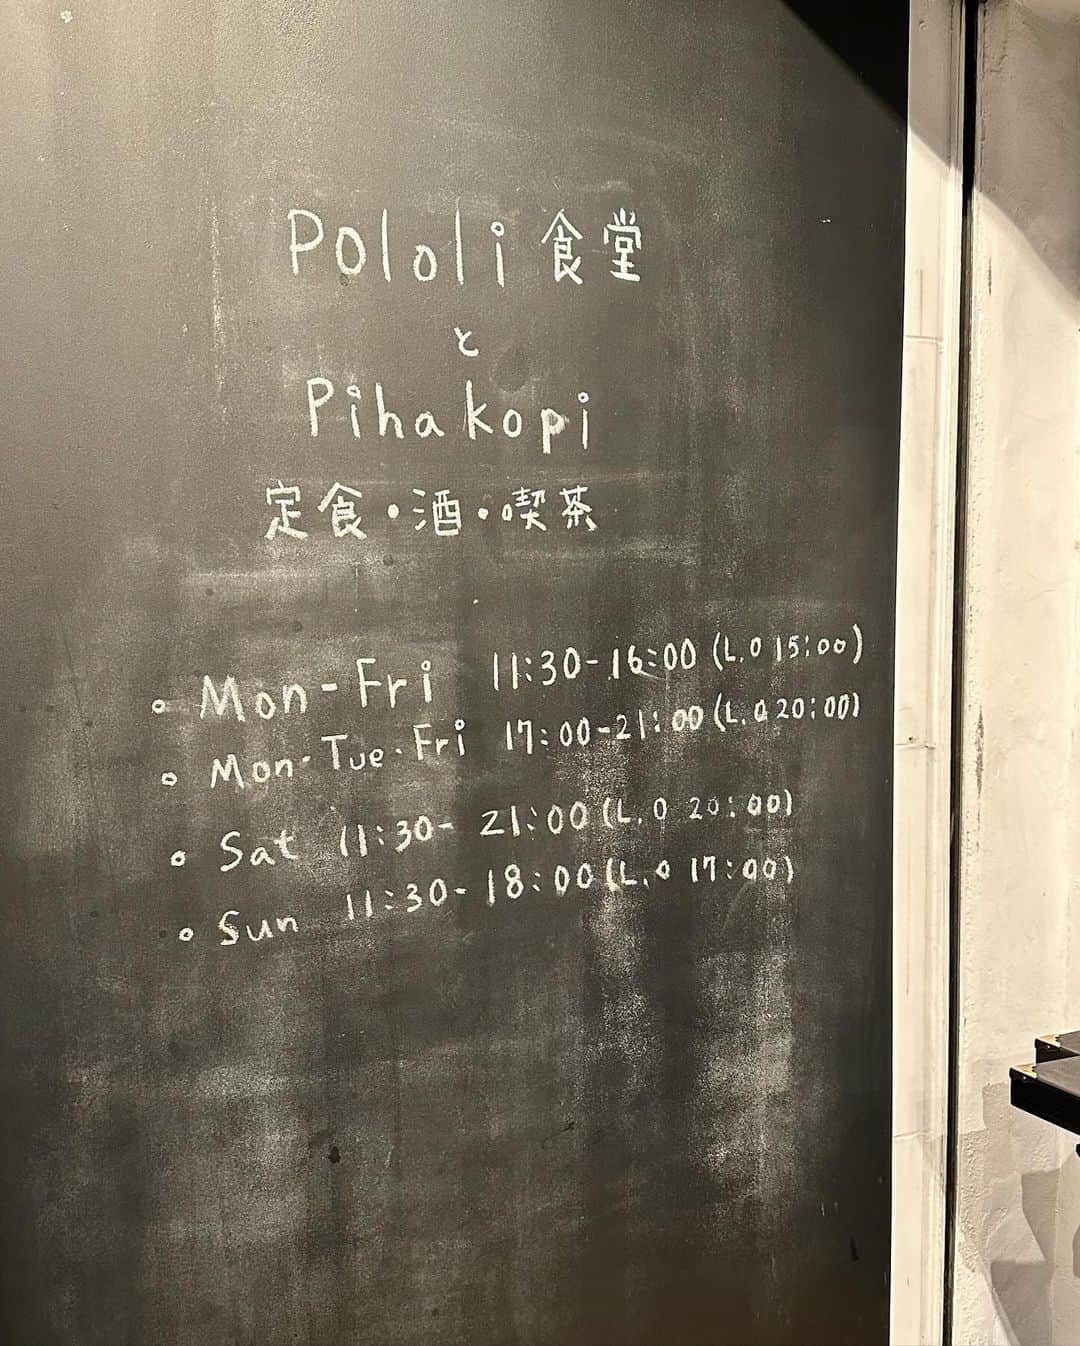 Pololi 食堂
と
Pihakopi
定食・酒・喫茶
• Mon-Fri 11:30-16:00 (L.O 15:00)
• Mon・Tue・Fri 17:00-21:00 (L.O 20:00)
• Sat 11:30- 21:00 (L.O 20:00)
• Sun 11:30-18:00 (L.O 17:00)